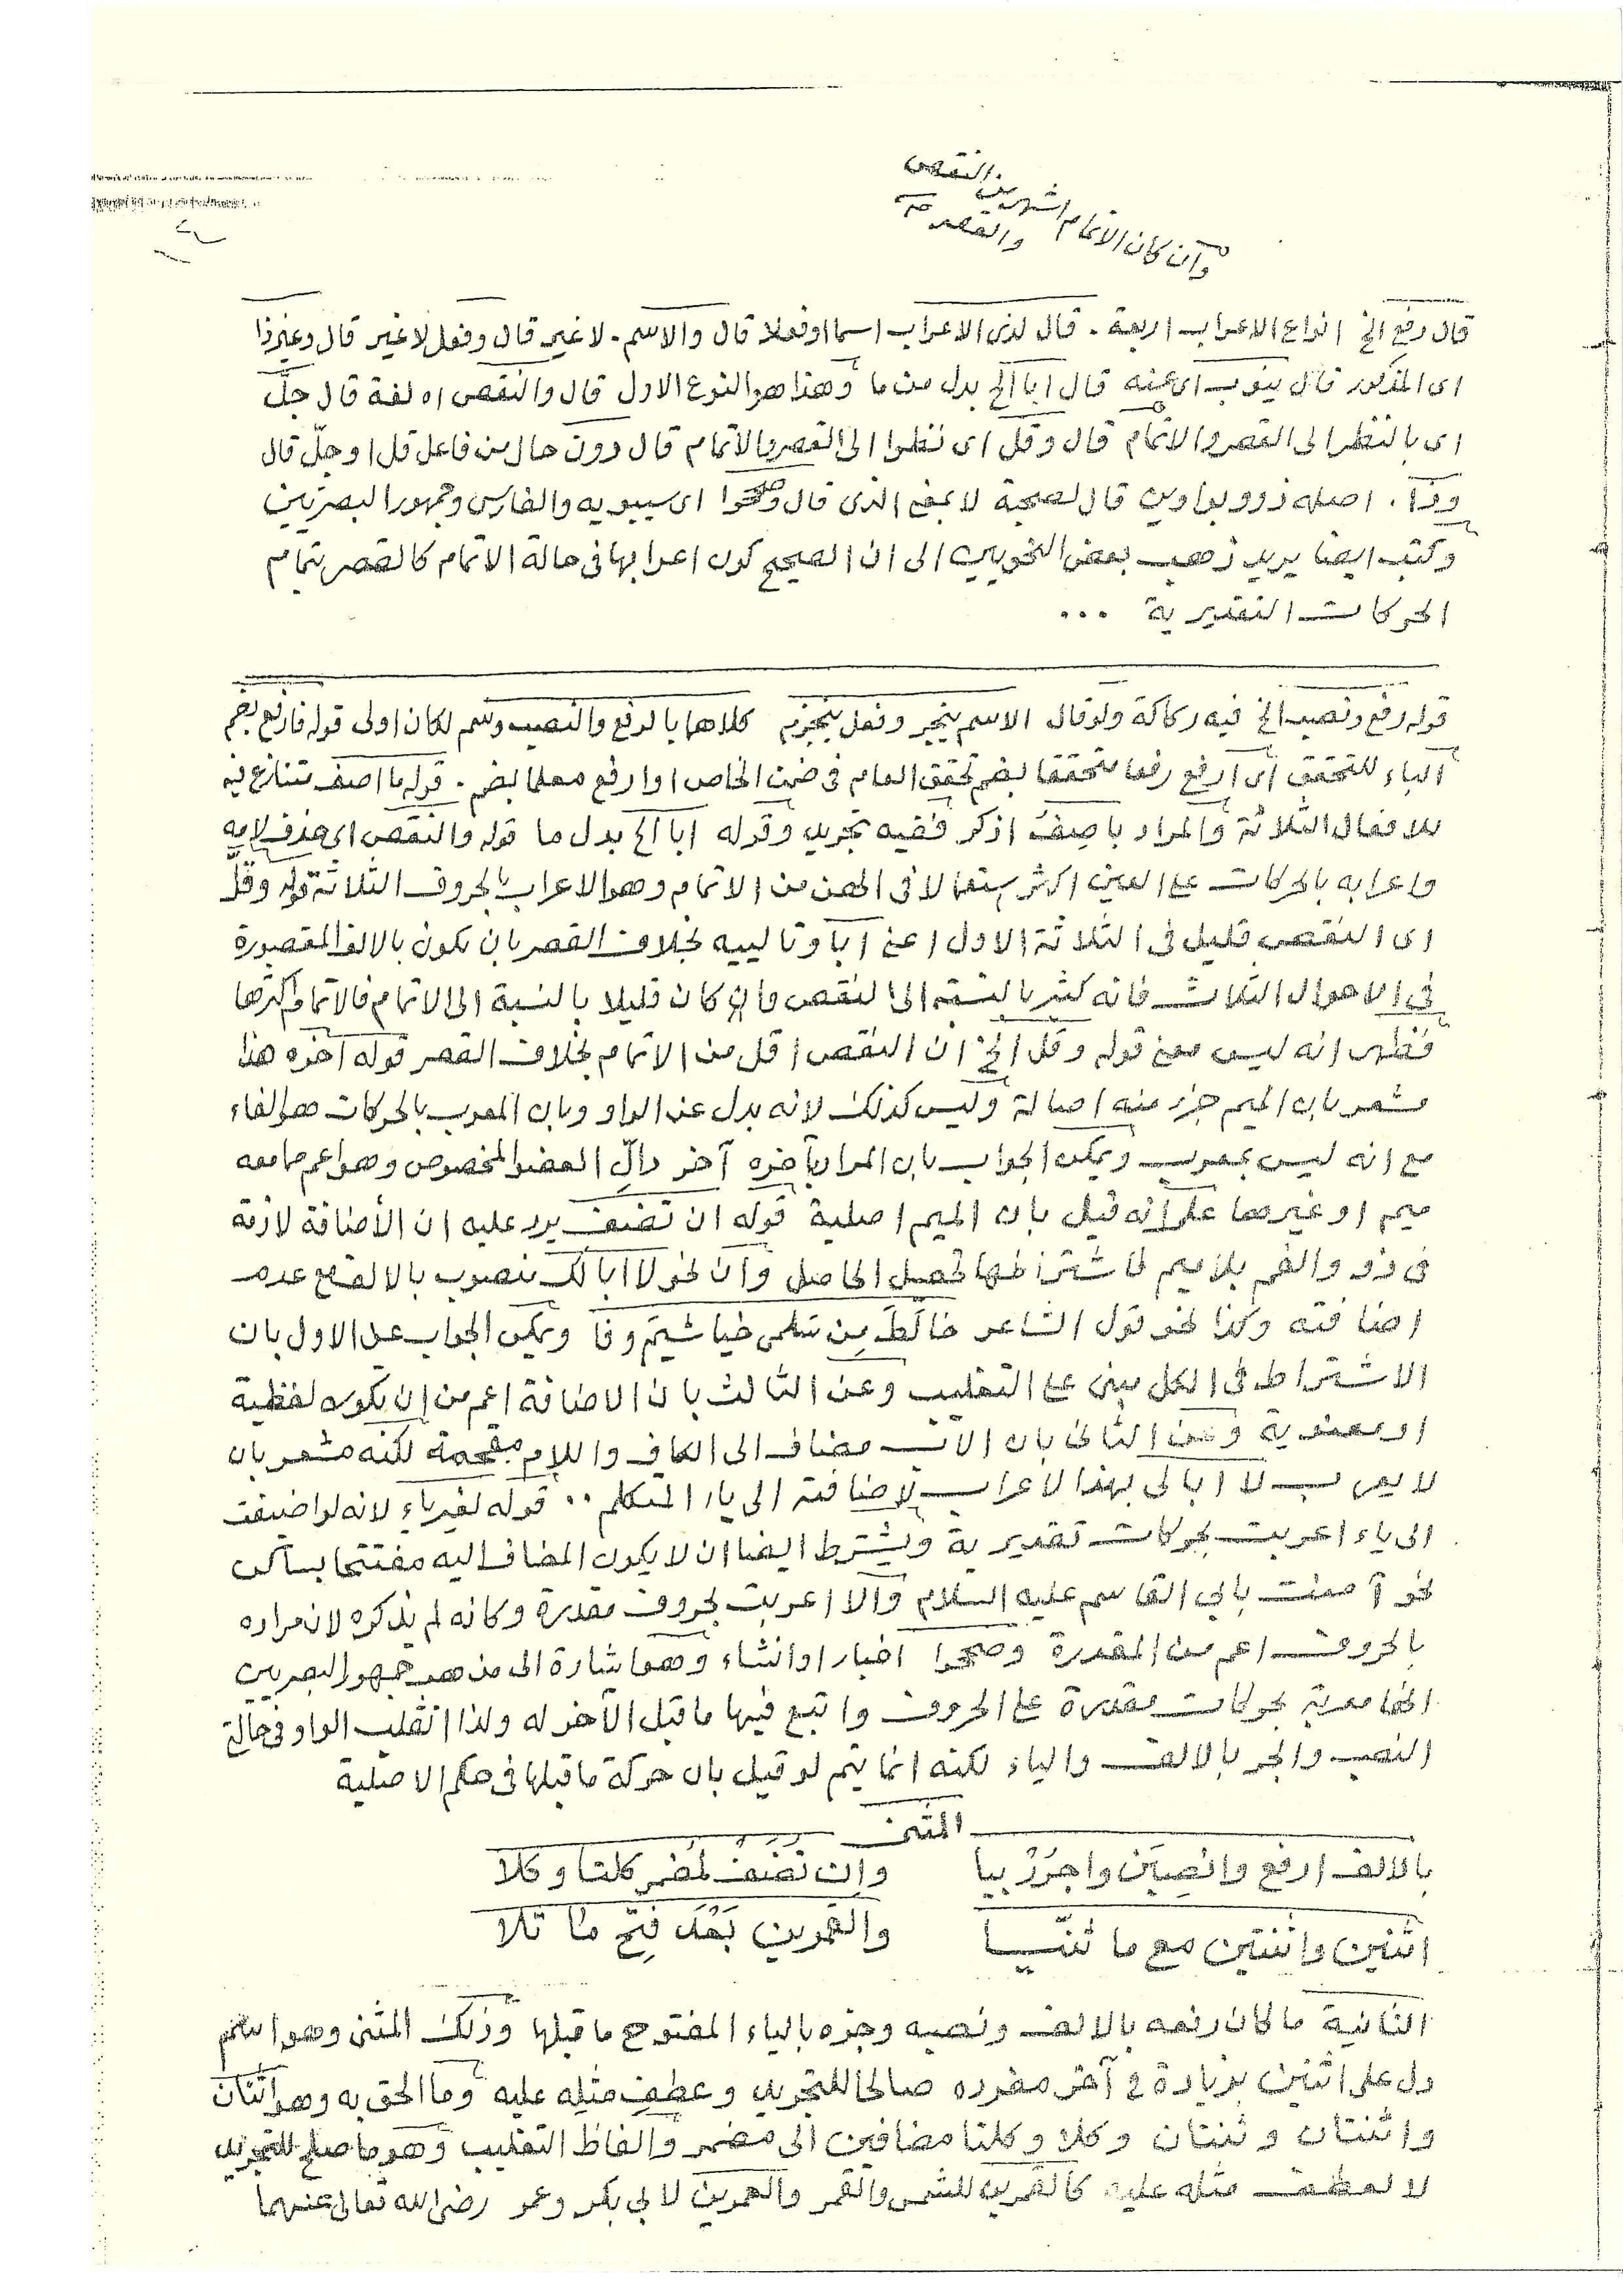 وان كان الاتمام اشهر من النقص
والقصر منه
قال رفع الخ انواع الاعراب اربعة . قال لذى الاعراب اسما او فعلا قال والاسم . لا غير قال وفعل لا غير قال وغير ذا
اى المذكور قال ينوب اى عنه قال ابا الخ بدل من ما وهذا هو النوع الاول قال والنقص اه لغة قال جلَّ
اى بالنظر الى القصر والاتمام قال وقل اى نظرا الى القصر والاتمام قال دون حال من فاعل قل او جلّ قال
وذا . اصله ذوو بواوين قال لصحبة لا بمعنى الذى قال وصححوا اى سيبويه والفارسى وجمهور البصريين
وكتب ايضا يريد ذهب بعض النحويين الى ان الصحيح كون اعرابها فى حالة الاتمام كالقصر بتمام
الحركات التقديرية ...
قوله رفع ونصب الخ فيه ركاكة ولو قال الاسم ينجر وفعل ينجزم كلاهما بالرفع والنصب وسم لكان اولى قوله فارفع بضم
الباء للتحقق اى ارفع رفعا متحققا بضم تحقق العام فى ضمن الخاص او ارفع معلما بضم . قوله ما اصف تنازع فيه
للافعال الثلاثة والمراد باصف اذكر ففيه تجريد وقوله ابا الخ بدل ما قوله والنقص اى حذف لامه
واعرابه بالحركات على العين اكثر استعمالا فى الهن من الاتمام وهو الاعراب بالحروف الثلاثة قوله وقلَّ
اى النقص قليل فى الثلاثة الاول اعنى ابا وتالييه بخلاف القصر بان يكون بالالف المقصورة
فى الاحوال الثلاث فانه كثير بالنسبة الى النقص وان كان قليلا بالنسبة الى الاتمام فالاتمام اكثرها
فظهر انه ليس معنى قوله وقل الخ ان النقص اقل من الاتمام بخلاف القصر قوله آخره هذا
مشعر بان الميم جزء منه اصالة وليس كذلك لانه بدل عن الواو وبان المعرب بالحركات هو الفاء
مع انه ليس بمعرب ويمكن الجواب بان المراد بآخره آخر دالِّ العضو المخصوص وهو اعم مما معه
ميم او غيرها على انه قيل بان الميم اصلية قوله ان تضف يرد عليه ان الأضافة لازمة
فى ذو والفم بلا ميم فاشتراطها تحصيل الحاصل وان نحو لا ابا لك منصوب بالالف مع عدم
اضافته وكذا نحو قول الشاعر خالَطَ مِن سلمى خياشيم وفا ويمكن الجواب عن الاول بان
الاشتراط فى الكل مبنى على التغليب وعن الثالث بان الاضافة اعم من ان يكون لفظية
او معنوية وعن الثانى بان الاب مضاف الى الكاف واللام مقحمة لكنه مشعر بان
لا يعرب لا ابا لى بهذا الاعراب لاضافته الى ياء المتكلم .. قوله لغير ياء لانه لو اضيفت
الى ياء اعربت بحركات تقديرية ويشترط ايضا ان لا يكون المضاف اليه مفتتحا بساكن
نحو آمنت بابي القاسم عليه السلام والا اعربت بحروف مقدرة وكانه لم يذكره لان مراده
بالحروف اعم من المقدرة وصححوا اخبار او انشاء وهو اشارة الى مذهب جمهور البصريين
انها معربة بحركات مقدرة على الحروف واتبع فيها ما قبل الآخر له ولذا انقلب الواو فى حالتى
النصب والجر بالالف والياء لكنه انما يتم لو قيل بان حركة ما قبلها فى حكم الاصلية
المثنى
بالالف ارفع وانصِبَن واجرُرْ بيا وان تضف لمضمر كلتا وكلا
اثنين واثنتين مع ما ثنّيا والقمرين بَعْدَ فتحِ ما تلا
الثانية ما كان رفعه بالالف ونصبه وجره بالياء المفتوح ما قبلها وذلك المثنى وهو اسم
دل على اثنين بزيادة فى آخر مفرده صالحا للتجريد وعطف مثله عليه وما الحق به وهو اثنان
واثنتان وثنتان وكلا وكلتا مضافين الى مضمر والفاظ التغليب وهو ما صلح للتجريد
لا لعطف مثله عليه كالقمرين للشمس والقمر والعمرين لابى بكر وعمر رضى الله تعالى عنهما